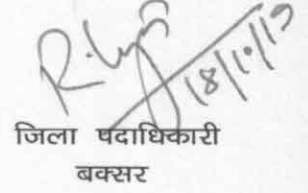 18/10/19
जिला पदाधिकारी
बक्सर